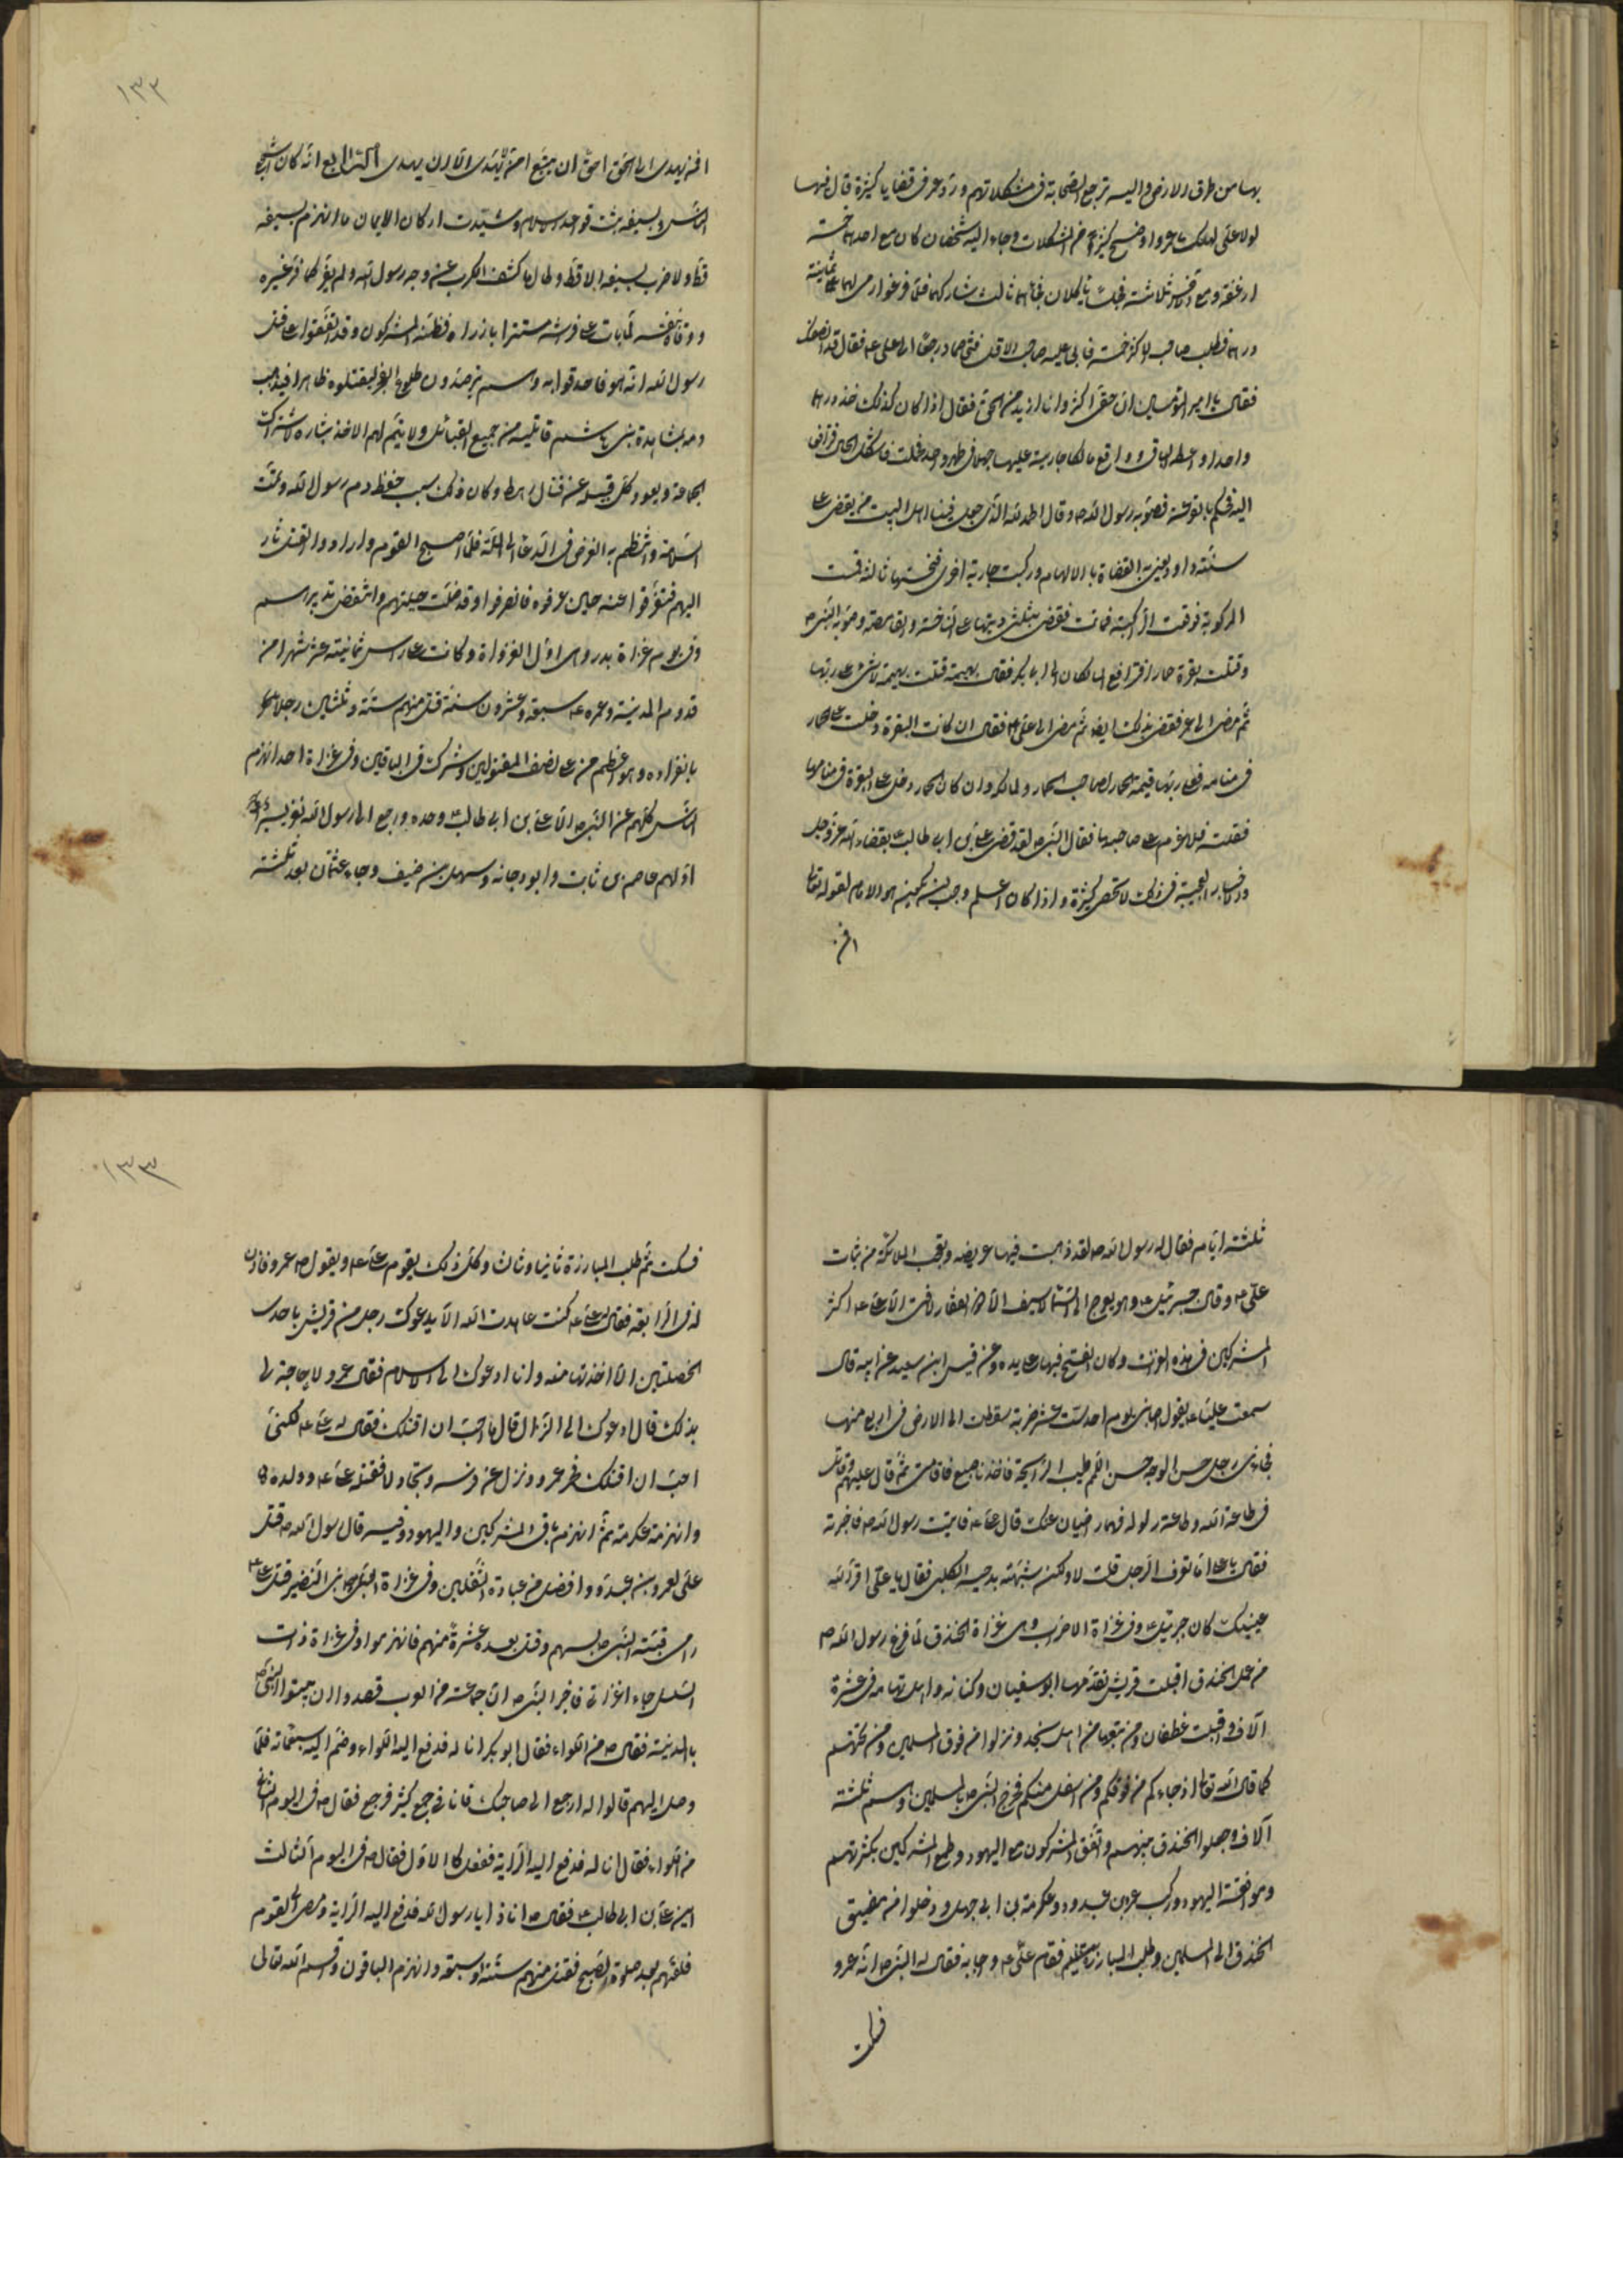 بها من طرق الارض واليه ترجع الصحابة في مشكلاتهم ورد عمر في قضايا كثيرة قال فيها
لولا علي لهلك عمر واوضح كثيرا من المشكلات وجاء اليه شخصان كان مع احدهما خمسة
ارغفة ومع الاخر ثلاثة فجلسا ياكلان فجاءهما ثالث فشاركهما فلما فرغوا رمى لهما ثمانية
دراهم فطلب صاحب الاكثر خمسة فابى عليه صاحب الاقل فتخاصما ورجعا الى علي ع فقال قد انصفك
فقال يا امير المؤمنين ان حقي اكثر وانا اريد مر الحق فقال اذا كان كذلك فخذ درهما
واحدا واعطه الباقي ووقع مالكا جارية عليها جهلا في طهر واحد فحملت فاشكل الحال فترافعا
اليه فحكم بالقرعة فصوبه رسول الله ص وقال الحمد لله الذي جعل فينا اهل البيت من يقضي على
سنة داود يعني به القضاء بالالهام وركبت جارية اخرى فنخستها ثالثة فقمصت
المركوبة فوقعت الراكبة فماتت فقضى بثلثي ديتها على الناخسة والقامصة وصوبه النبي ص
وقتلت بقرة حمارا فترافع المالكان الى ابي بكر فقال بهيمة قتلت بهيمة لا شيء على ربها
ثم مضى الى عمر فقضى بذلك ايضا ثم مضى الى علي ع فقال ان كانت البقرة دخلت على الحمار
في منامه فعلى ربها قيمة الحمار لصاحب الحمار ولمالكه وان كان الحمار دخل على البقرة في منامها
فقتلته فلا غرم على صاحبها فقال النبي ص لقد قضى علي بن ابي طالب ع بقضاء الله عز وجل
والاخبار العجيبة في ذلك لا تحصى كثرة واذا كان اعلم وجب ان يكون هو الامام لقوله تعالى
افمن
١٣٢
افمن يهدي الى الحق احق ان يتبع امن لا يهدي الا ان يهدى الرابع انه كان اشجع
الناس وبسيفه ثبتت قواعد الاسلام وشيدت اركان الايمان ما انهزم بسيفه
قط ولا ضرب بسيفه الا قط وطال ما كشف الكرب عن وجه رسول الله ولم يفر كما فر غيره
ووقاه بنفسه لما بات على فراشه مستترا بازاره فظنه المشركون وقد اتفقوا على قتل
رسول الله انه هو فاحدقوا به وهم يرصدون طلوع الفجر ليقتلوه ظاهرا فيذهب
دمه بمشاهدة بني هاشم قاتليه من جميع القبائل ولا يتم لهم الاخذ بثاره لاشتراك
الجماعة ويعود كل قبيل عن قتال رهطه وكان ذلك سبب حفظ دم رسول الله وتمت
السلامة وانتظم به الغرض في الدعاء الى الملة فلما اصبح القوم وارادوا الفتك ثار
اليهم فتفرقوا عنه حين عرفوه فانصرفوا وقد ضلت حيلتهم وانتقض تدبيرهم
وفي يوم غزاة بدر وهي اول الغزوات وكانت على راس ثمانية عشر شهرا من
قدوم المدينة وعمره ع سبعة وعشرون سنة قتل منهم ستة وثلثين رجلا
بانفراده وهو اعظم من نصف المقتولين وشرك في الباقين وفي غزاة احد انهزم
الناس كلهم عن النبي ص الا علي بن ابي طالب ع وحده ورجع الى رسول الله نفر يسير
اولهم عاصم بن ثابت وابو دجانة وسهل بن حنيف وجاء عثمان بعد ثلثة
ثلثة ايام فقال له رسول الله ص لقد ذهبت فيها عريضة وتعجب الملائكة من ثبات
علي ع وقال جبرئيل ع وهو يعرج الى السماء لا سيف الا ذو الفقار ولا فتى الا علي ع اكثر
المشركين في هذه الغزاة وكان الفتح فيها على يده وعن قيس ابن سعيد عن ابيه قال
سمعت عليا ع يقول اصابني يوم احد ست عشر ضربة سقطت الى الارض في اربع منها
فجاءني رجل حسن الوجه حسن اللم طيب الرائحة فاخذ بضبعي فاقامني ثم قال عليهم وقاتل
في طاعة الله وطاعة رسوله فهما راضيان عنك قال علي ع فاتيت رسول الله ص فاخبرته
فقال يا علي اما تعرف الرجل قلت لا ولكن شبهته بدحية الكلبي فقال يا علي اقر الله
عينيك كان جبرئيل ع وفي غزاة الاحزاب وهي غزاة الخندق لما فرغ رسول الله ص
من عمل الخندق اقبلت قريش يقدمها ابو سفيان وكنانة واهل تهامة في عشرة
آلاف واقبلت غطفان ومن يتبعها من اهل نجد ونزلوا من فوق المسلمين ومن تحتهم
كما قال الله تعالى اذ جاءوكم من فوقكم ومن اسفل منكم فخرج النبي ص بالمسلمين وهم ثلثة
آلاف وجعلوا الخندق بينهم واتفق المشركون مع اليهود وطمع المشركين بكثرتهم
وموافقة اليهود وركب عمرو بن عبدود وعكرمة بن ابي جهل ودخلوا من مضيق
الخندق الى المسلمين وطلب المبارزة فقام علي ع واجابه فقال له النبي ص انه عمرو
فسكت
١٣٣
فسكت ثم طلب المبارزة ثانيا وثالثا وكل ذلك يقوم علي ع ويقول ص عمرو فاذن
له في الرابعة فقال له علي ع كنت عاهدت الله الا يدعوك رجل من قريش باحدى
الخصلتين الا اخذتها منه وانا ادعوك الى الاسلام فقال عمرو لا حاجة لي
بذلك قال ادعوك الى النزال قال ما احب ان اقتلك فقال له علي ع لكني
احب ان اقتلك فحمى عمرو ونزل عن فرسه وتجاولا فقتله علي ع وولده
وانهزم عكرمة ثم انهزم باقي المشركين واليهود وفيه قال رسول الله ص قتل
علي لعمرو بن عبدود افضل من عبادة الثقلين وفي غزاة بني النضير قتل علي ع
رامي قبة النبي ص بسهم وقتل بعده عشرة منهم فانهزموا وفي غزاة ذات
السلسل جاء اعرابي فاخبر النبي ص ان جماعة من العرب قصدوا ان يبيتوا النبي ص
بالمدينة فقال ص من للواء فقال ابو بكر انا له فدفع اليه اللواء وضم اليه سبعمائة فلما
وصل اليهم قالوا له ارجع الى صاحبك فانا في جمع كثير فرجع فقال ص في اليوم الثاني
من للواء فقال انا له فدفع اليه الراية ففعل كالاول فقال ص في اليوم الثالث
اين علي بن ابي طالب ع فقال انا ذا يا رسول الله فدفع اليه الراية ومضى الى القوم
فلقيهم بعد صلوة الصبح فقتل منهم ستة او سبعة وانهزم الباقون واقسم الله تعالى